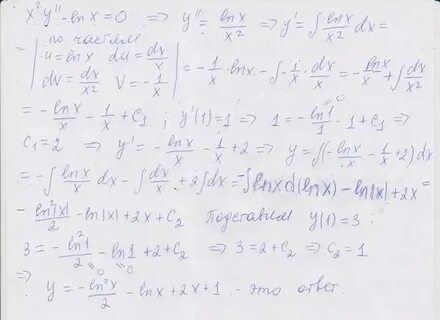 x²y'' - ln x = 0 ⇒ y'' = ln x / x² ⇒ y' = ∫ ln x / x² dx =
по частям
| u = ln x du = dx/x
dV = dx/x² V = -1/x | = -1/x · ln x - ∫ -1/x · dx/x = -ln x / x + ∫ dx/x²
= -ln x / x - 1/x + C₁ ; y'(1) = 1 ⇒ 1 = -ln 1 / 1 - 1 + C₁ ⇒
C₁ = 2 ⇒ y' = -ln x / x - 1/x + 2 ⇒ y = ∫(-ln x / x - 1/x + 2) dx
= -∫ ln x / x dx - ∫ dx/x + 2∫dx = -∫ ln x d(ln x) - ln|x| + 2x =
-ln²|x| / 2 - ln|x| + 2x + C₂ Подставим y(1) = 3 :
3 = -ln²1 / 2 - ln 1 + 2 + C₂ ⇒ 3 = 2 + C₂ ⇒ C₂ = 1
⇒ y = -ln²x / 2 - ln x + 2x + 1 - это ответ.